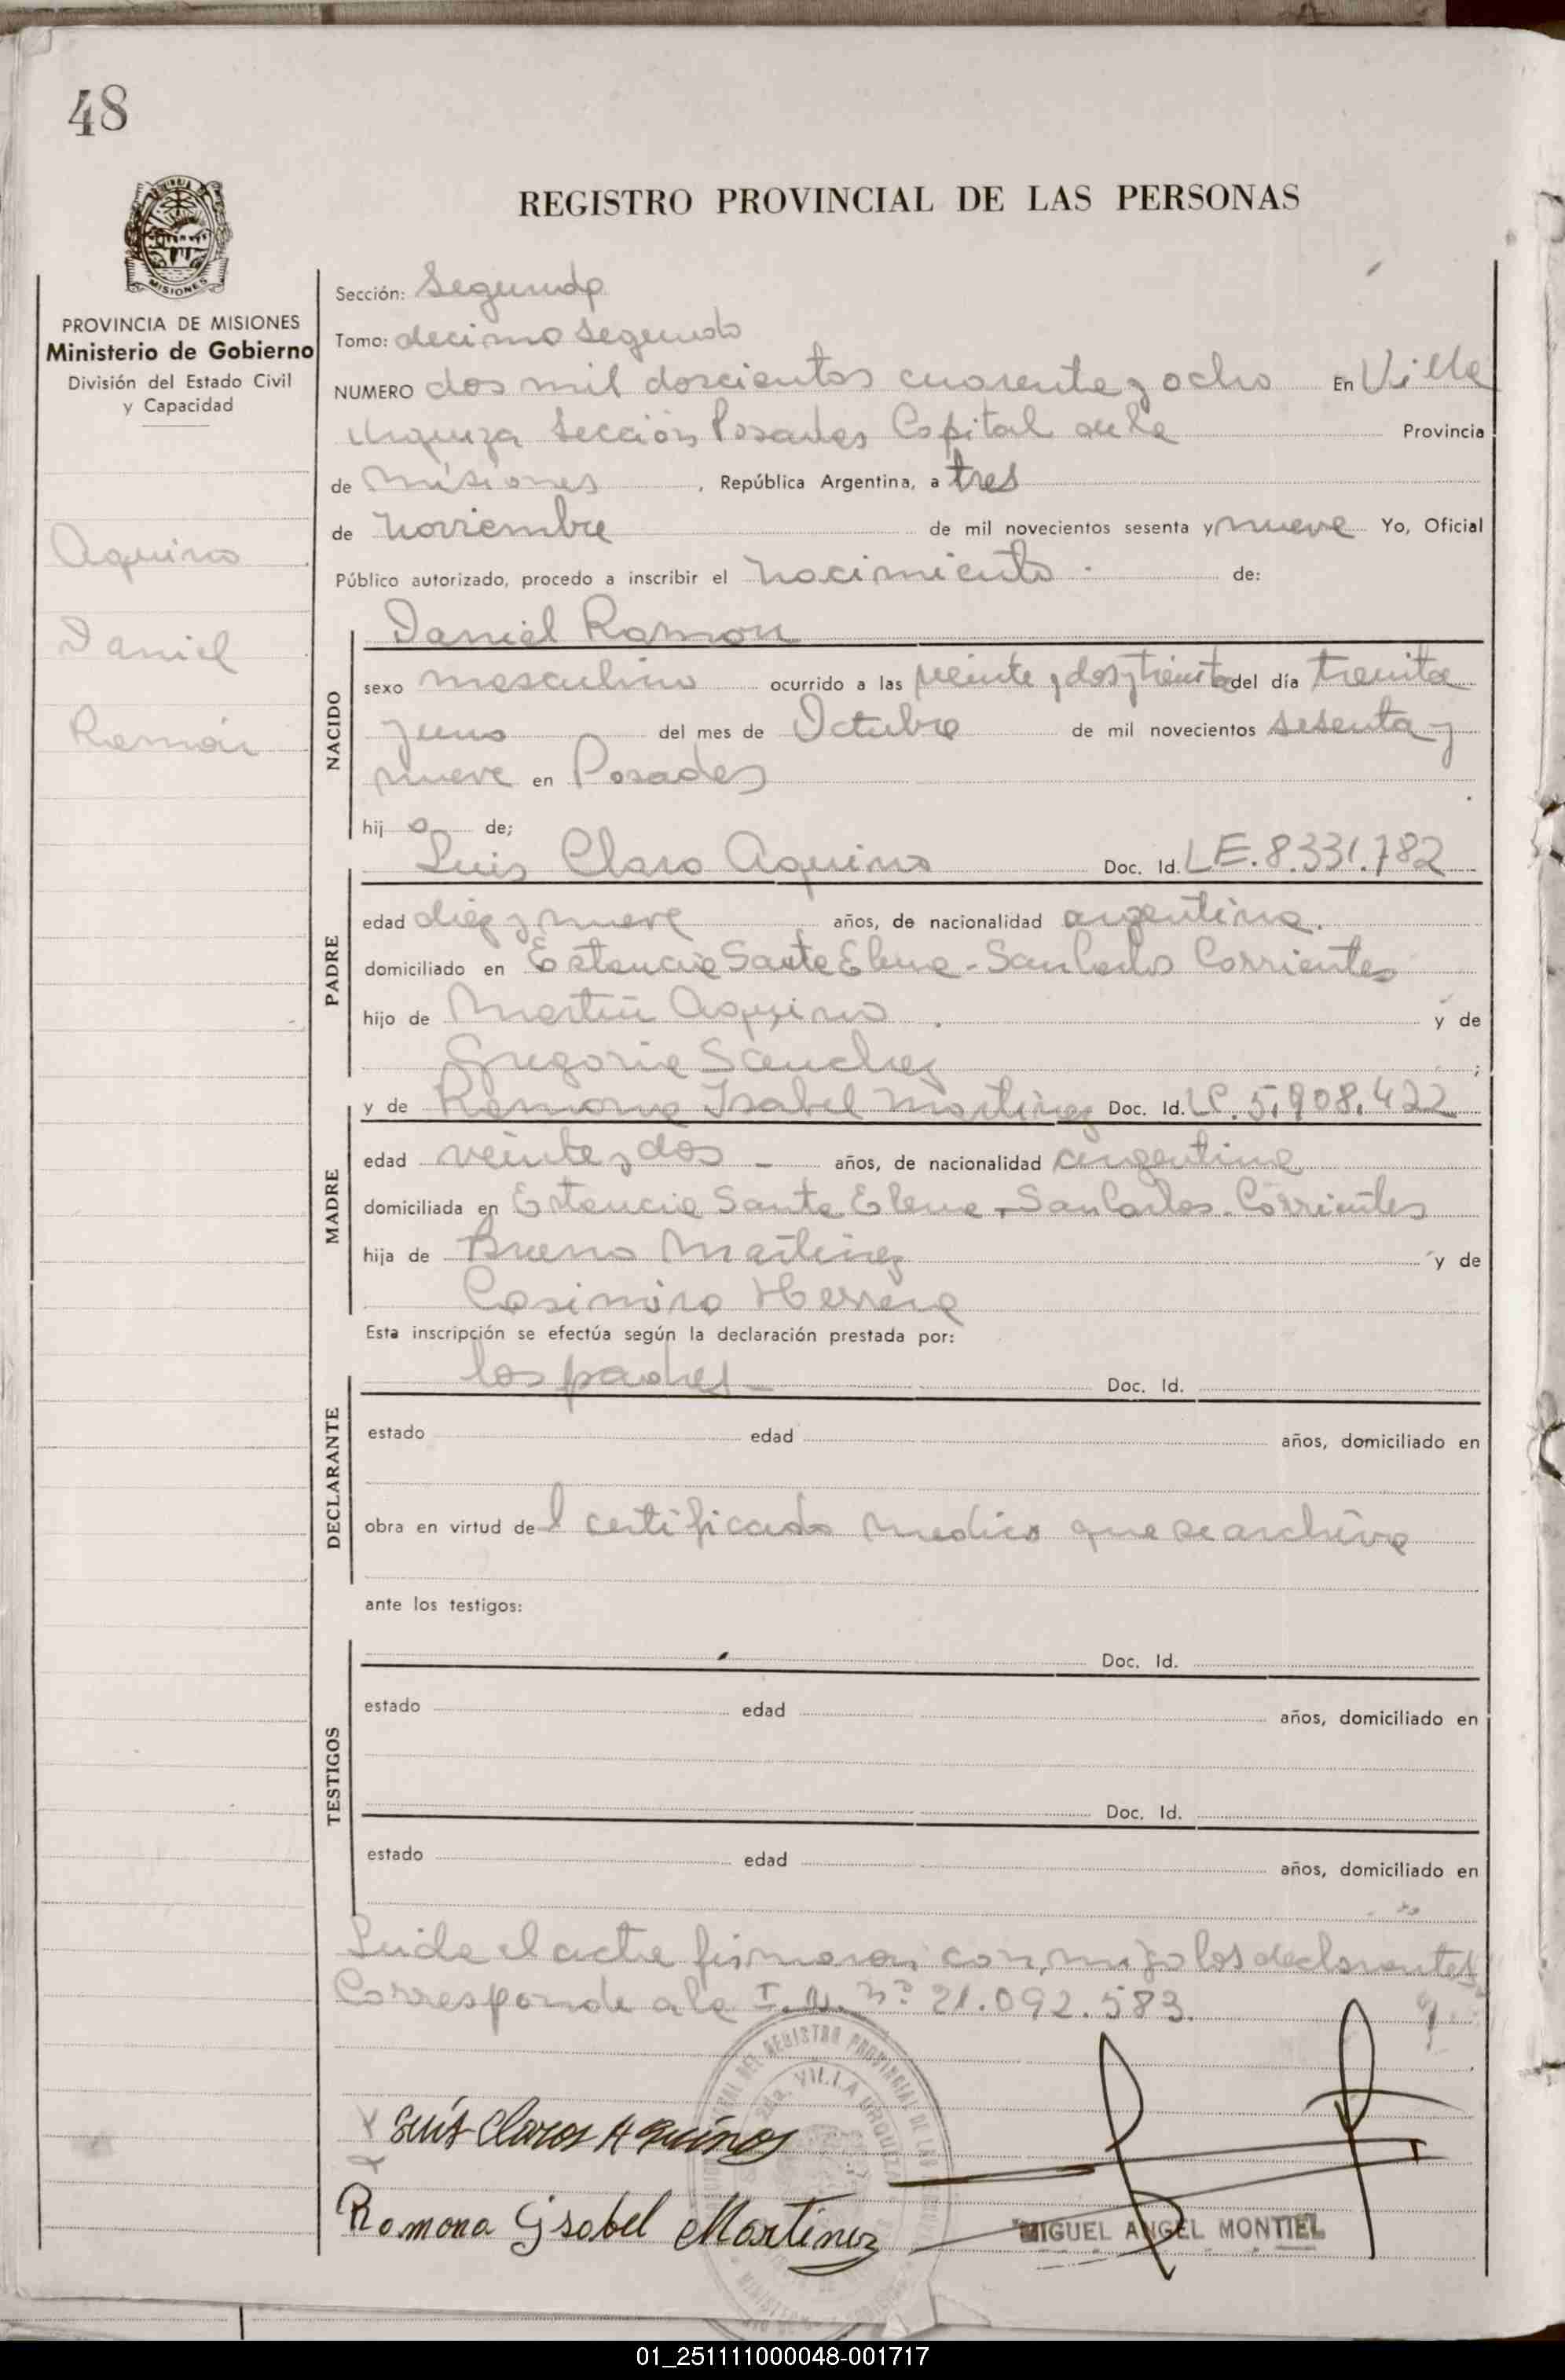 48
REGISTRO PROVINCIAL DE LAS PERSONAS
MISIONES
PROVINCIA DE MISIONES
Ministerio de Gobierno
División del Estado Civil
y Capacidad
Aquino
Daniel
Ramón
Sección: Segunda
Tomo: decimo segundo
NUMERO dos mil doscientos cuarenta y ocho En Villa
Urquiza Sección Posadas Capital de la Provincia
de Misiones, República Argentina, a tres
de noviembre de mil novecientos sesenta y nueve Yo, Oficial
Público autorizado, procedo a inscribir el nacimiento de:
NACIDO
Daniel Ramon
sexo masculino ocurrido a las veinte y dos y treinta del día treinta
y uno del mes de Octubre de mil novecientos sesenta y
nueve en Posadas
hijo de;
PADRE
Luis Claro Aquino Doc. Id. LE. 8.331.782
edad diez y nueve años, de nacionalidad argentina.
domiciliado en Estancia Santa Elena - San Carlos Corrientes
hijo de Martin Aquino y de
Gregoria Sanchez;
MADRE
y de Ramona Isabel Martinez Doc. Id. LC. 5.908.422
edad veinte y dos - años, de nacionalidad argentina
domiciliada en Estancia Santa Elena - San Carlos - Corrientes
hija de Bruno Martinez y de
Casimira Herrera
Esta inscripción se efectúa según la declaración prestada por:
DECLARANTE
los padres - Doc. Id.
estado edad años, domiciliado en
obra en virtud del certificado medico que se archiva
ante los testigos:
TESTIGOS
Doc. Id.
estado edad años, domiciliado en
Doc. Id.
estado edad años, domiciliado en
Leida el acta firmaron conmigo los declarantes
Corresponde a la I.N. nº 21.092.583.
2da. VILLA URQUIZA
Luis Claros Aquinos
Ramona Ysabel Martinez
MIGUEL ANGEL MONTIEL
01_251111000048-001717